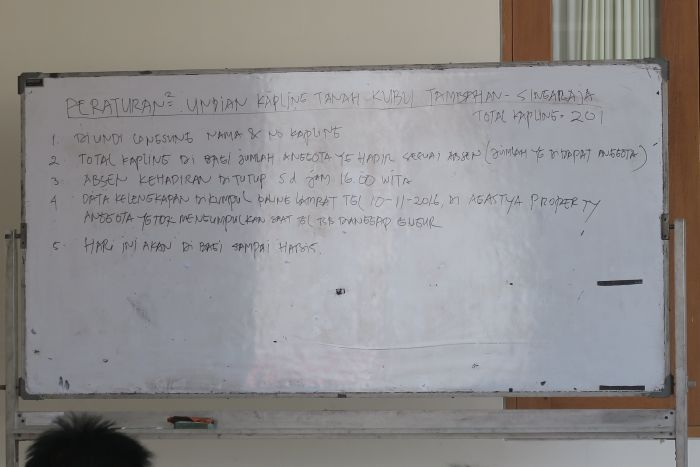 PERATURAN² UNDIAN KAPLING TANAH KUBU TAMBAHAN - SINGARAJA
TOTAL KAPLING = 201
1. DIUNDI LANGSUNG NAMA & NO KAPLING
2. TOTAL KAPLING DI BAGI JUMLAH ANGGOTA YG HADIR SESUAI ABSEN (JUMLAH YG DIDAPAT ANGGOTA)
3. ABSEN KEHADIRAN DI TUTUP Sd JAM 16.00 WITA
4. DATA KELENGKAPAN DI KUMPUL PALING LAMBAT TGL 10-11-2016, DI AGASTYA PROPERTY
ANGGOTA YG TDK MENGUMPULKAN SAAT TGL TSB DIANGGAP GUGUR
5. HARI INI AKAN DI BAGI SAMPAI HABIS.